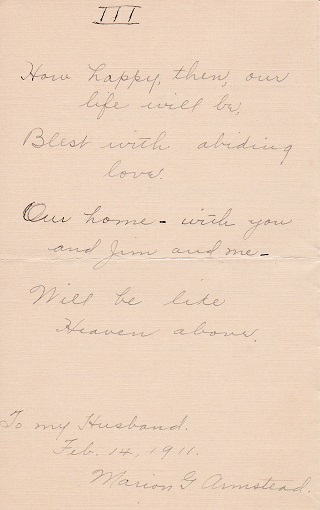 III
How happy, then, our
life will be,
Blest with abiding
love.
Our home - with you
and Jim and me -
Will be like
Heaven above.
To my Husband.
Feb. 14, 1911.
Marion G Armstead.